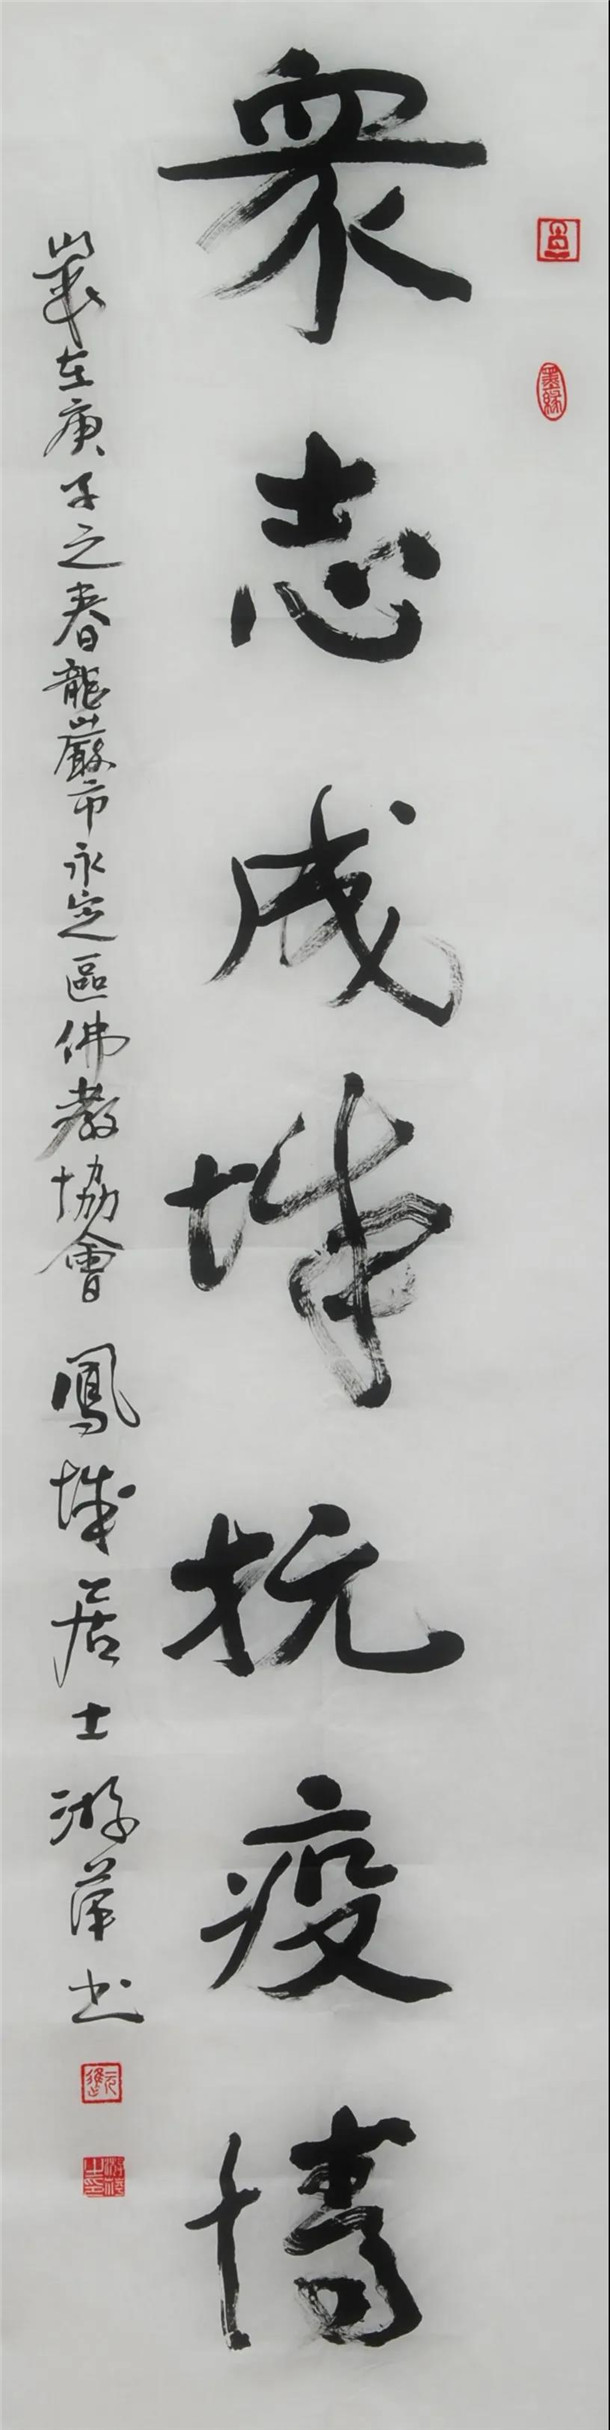 衆志成城抗疫情
歲在庚子之春龍巖市永定區佛教協會 鳳城居士游萍书
墨緣